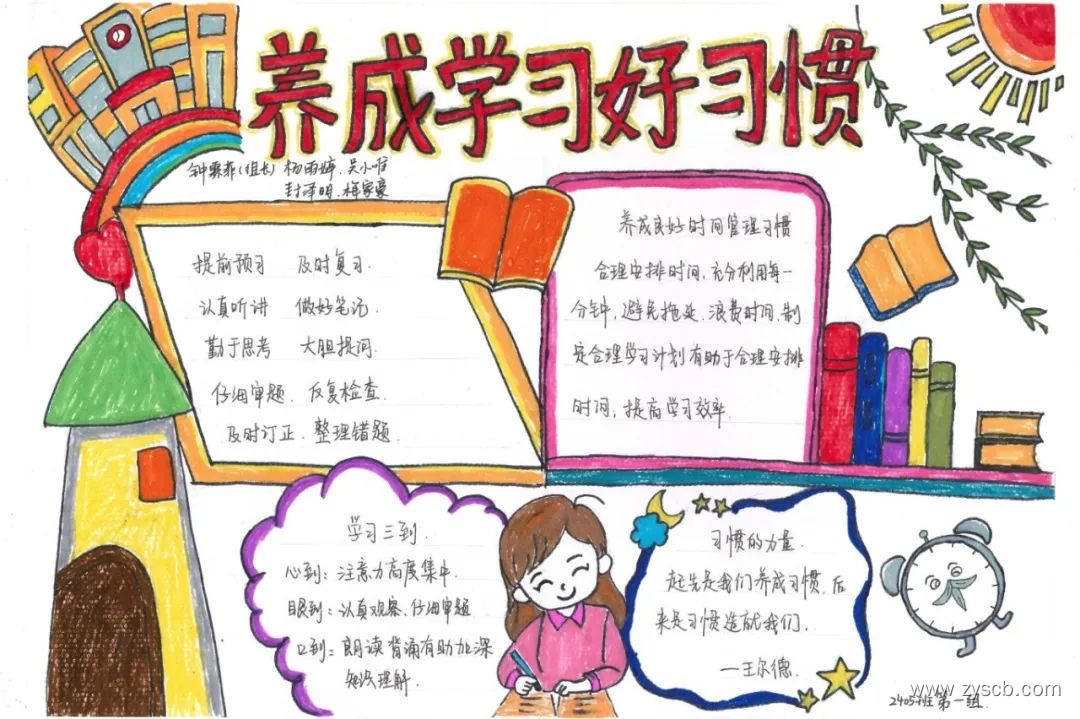 养成学习好习惯
钟霖菲(组长) 杨雨婷、吴小唯
封泽明、梅家豪
提前预习 及时复习.
认真听讲 做好笔记.
勤于思考 大胆提问.
仔细审题、反复检查.
及时订正、整理错题.
养成良好时间管理习惯
合理安排时间,充分利用每一
分钟,避免拖延、浪费时间,制
定合理学习计划有助于合理安排
时间,提高学习效率.
学习三到.
心到:注意力高度集中.
眼到:认真观察、仔细审题
口到:朗读背诵有助加深
知识理解.
习惯的力量.
起先是我们养成习惯、后
来是习惯造就我们.
—王尔德.
2405班第一组.
www.zyscb.com